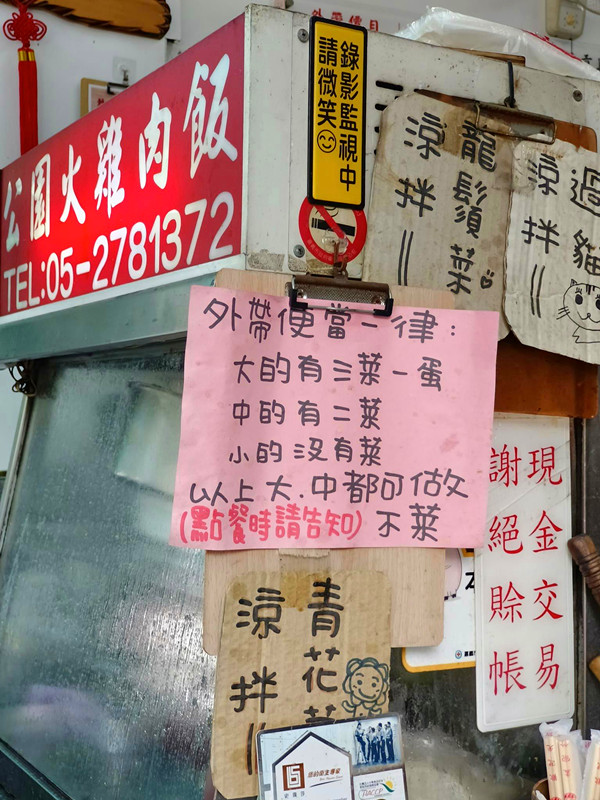 公園火雞肉飯
TEL:05-2781372
錄影監視中
請微笑
龍鬚菜
涼拌
過貓
涼拌
外帶便當一律:
大的有三菜一蛋
中的有二菜
小的沒有菜
以上大.中都可做
(點餐時請告知) 不菜
現金交易
謝絕賒帳
青花菜
涼拌